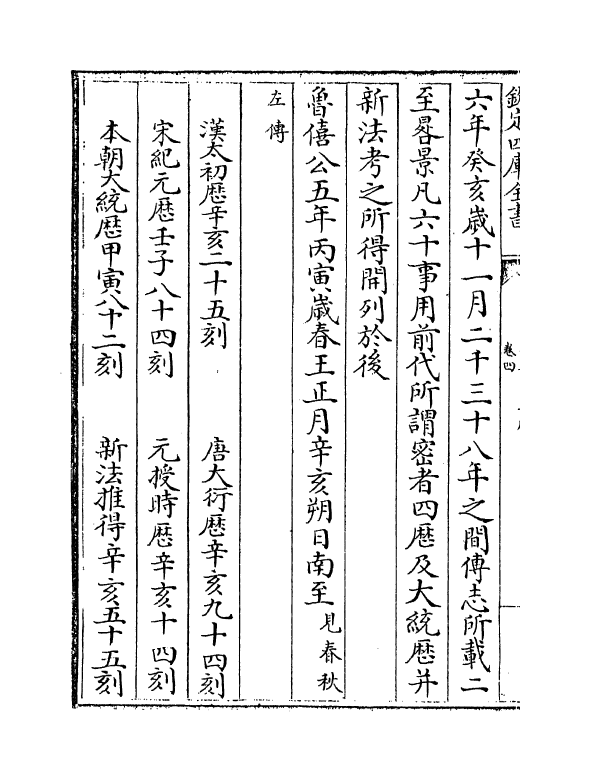 欽定四庫全書
卷四
六年癸亥歲十一月二千三十八年之間傳志所載二
至晷景凡六十事用前代所謂密者四歷及大統歷并
新法考之所得開列於後
魯僖公五年丙寅歲春王正月辛亥朔日南至見春秋
左傳
漢太初歷辛亥二十五刻　唐大衍歷辛亥九十四刻
宋紀元歷壬子八十四刻　元授時歷辛亥十四刻
本朝大統歷甲寅八十二刻　新法推得辛亥五十五刻